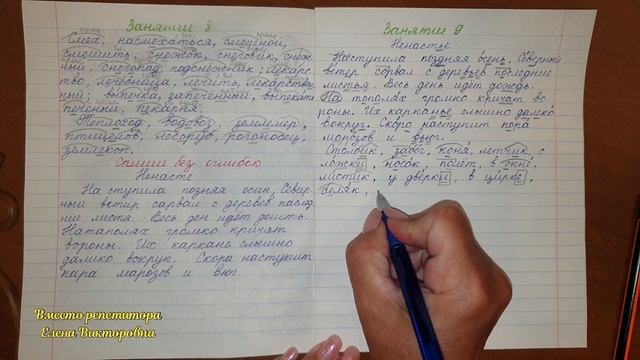 Занятие 8
Смех, насмехаться, смешной,
смешить; снежок, снеговик, снеж-
ный, снегопад, подснежник; лекарс-
тво, лечебница, лечить, лекарствен-
ный; выпечка, запечённый, выпекать,
печёный, пекарня.
Теплоход, водовоз, землемер,
птицелов, лесоруб,
землекоп.
Спиши без ошибок
Ненасте
На ступила позняя осин. Север
ный ветир сарвал с деревев послед
ние листя. Весь ден идёт дошть.
Натаполях громко кричят
вороны. Их каркане слышно
далико вокрук. Скора наступит
пара марозов и вюг.
Занятие 9
Ненастье
Наступила поздняя осень. Северный
ветер сорвал с деревьев последние
листья. Весь день идёт дождь.
На тополях громко кричат во-
роны. Их карканье слышно далеко
вокруг. Скоро наступит пора
морозов и вьюг.
Столбик, завог, коня, летчик, с
ложки, носок, полёт, в окне,
листик, у дверки, в цирке,
беляк,
Вместо репетитора
Елена Викторовна